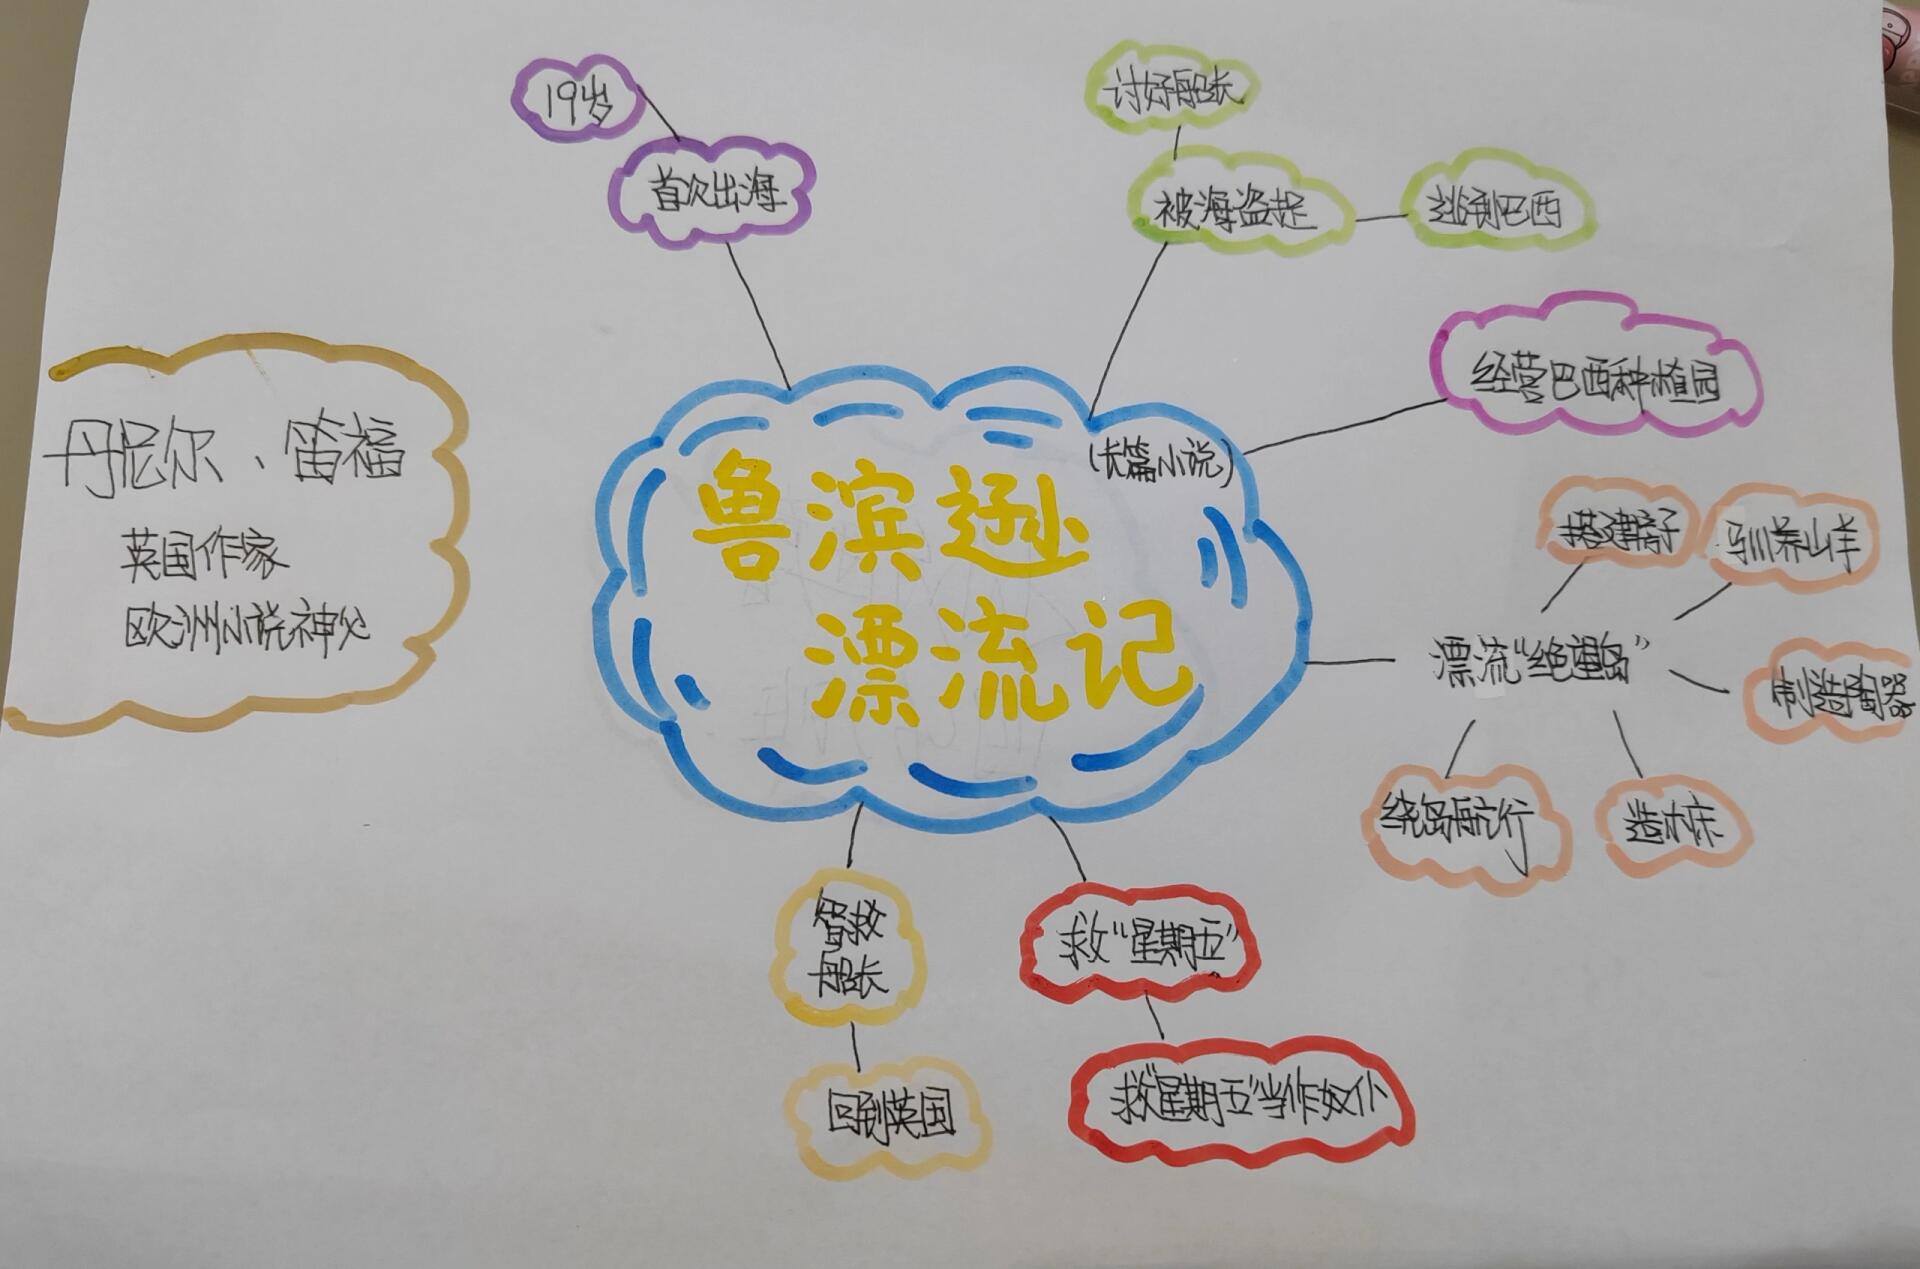 19岁
首次出海
讨好船长
被海盗捉
逃到巴西
经营巴西种植园
(长篇小说)
鲁滨逊
漂流记
丹尼尔、笛福
英国作家
欧洲小说神父
搭建房子
驯养山羊
漂流“绝望岛”
制造陶器
绕岛航行
造木床
智救
船长
回到英国
救“星期五”
救“星期五”当作奴仆